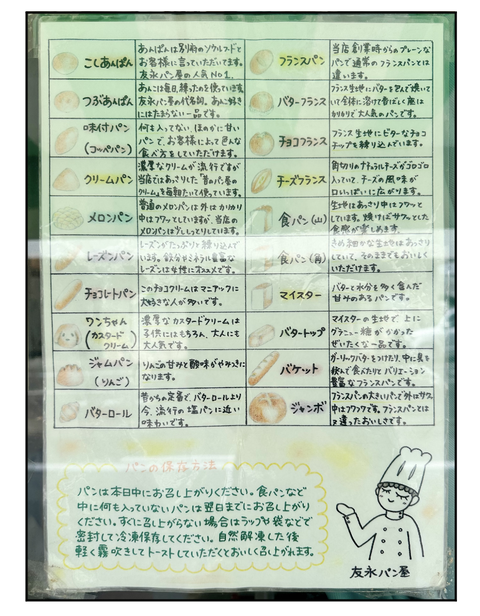 こしあんぱん
あんぱんは別府のソウルフードと
お客様に言っていただいてます。
友永パン屋の人気No.1。
つぶあんぱん
あんこは毎日、練ったのを使っています
友永パン屋の代名詞。あん好き
にはたまらない一品です。
味付パン
(コッペパン)
何も入ってない、ほのかに甘い
パンで、お客様によって色んな
食べ方をしていただけます。
クリームパン
濃厚なクリームが流行ですが
当店ではあっさりした"昔のパン屋の
クリーム"を毎朝たいて使っています。
メロンパン
普通のメロンパンは外はカリカリ
中はフワッとしていますが、当店の
メロンパンは少ししっとりしています。
レーズンパン
レーズンがたっぷりと練り込んで
います。鉄分やミネラル豊富な
レーズンは女性にオススメです。
チョコレートパン
このチョコクリームはマニアックに
大好きな人が多いです。
ワンちゃん
(カスタード
クリーム)
濃厚なカスタードクリームは
子供にはもちろん、大人にも
大人気です。
ジャムパン
(りんご)
りんごの甘みと酸味がやみつきに
なります。
バターロール
昔からの定番で、バターロールより
今、流行の塩パンに近い
味わいです。
フランスパン
当店創業時からのプレーンな
パンで通常のフランスパンとは
違います。
バターフランス
フランス生地にバターを包んで焼いて
いて全体に溶けて香ばしく底は
カリカリで大人気のパンです。
チョコフランス
フランス生地にビターなチョコ
チップを練り込んでいます。
チーズフランス
角切りのナチュラルチーズがゴロゴロ
入っていて、チーズの風味が
口いっぱいに広がります。
食パン(山)
生地はあっさり中はフワッと
しています。焼けばサクッとした
食感が楽しめます。
食パン(角)
きめ細かな生地はあっさり
していて、そのままでもおいしく
いただけます。
マイスター
バターと水分を多く含んだ
甘みのあるパンです。
バタートップ
マイスターの生地で、上に
グラニュー糖がかかった
ぜいたくな一品です。
バケット
ガーリックバターをつけたり、中に具を
挟んで食べたりとバリエーション
豊富なフランスパンです。
ジャンボ
フランスパンの大きいパンで外はサクッ
中はフワフワです。フランスパンとは
又違ったおいしさです。
パンの保存方法
パンは本日中にお召し上がりください。食パンなど
中に何も入っていないパンは翌日までにお召し上がり
ください。すぐに召し上がらない場合はラップや袋などで
密封して冷凍保存してください。自然解凍した後
軽く霧吹きしてトーストしていただくとおいしく召し上がれます。
友永パン屋